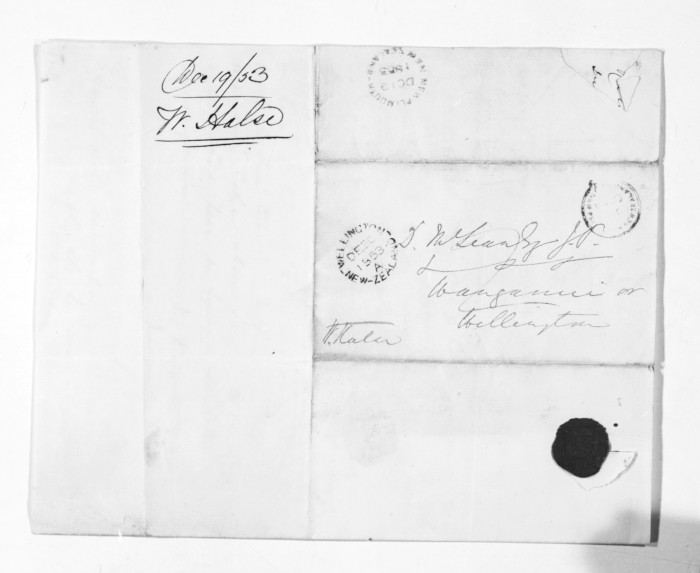 Dec 19/53
W. Halse
NEW PLYMOUTH
NEW ZEALAND
DC 19
1853
WELLINGTON
DE
1853
A
NEW-ZEALAND
D. McLean Esq J.P.
Wanganui or
Wellington
W. Halse